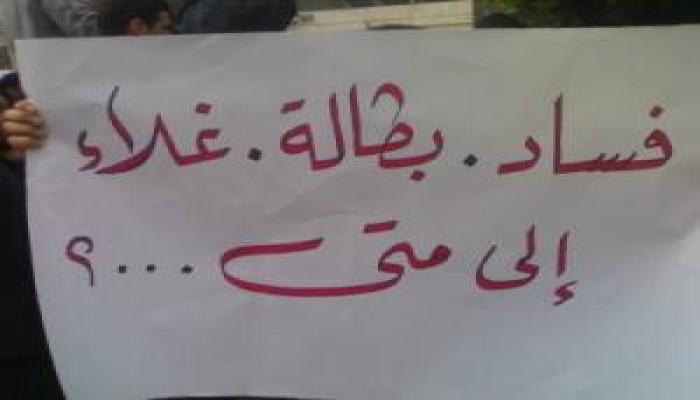 فساد . بطالة . غلاء
إلى متى ....؟